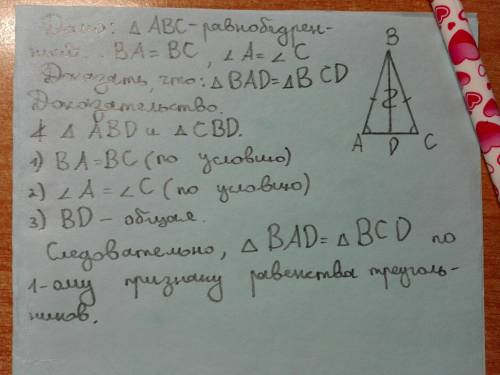 Дано: △ ABC - равнобедрен-
ный. BA = BC, ∠A = ∠C
Доказать, что: △ BAD = △ BCD
Доказательство.
△ ABD и △ CBD.
1) BA = BC (по условию)
2) ∠A = ∠C (по условию)
3) BD - общая.
Следовательно, △ BAD = △ BCD по
1-ому признаку равенства треуголь-
ников.
B
A
D
C